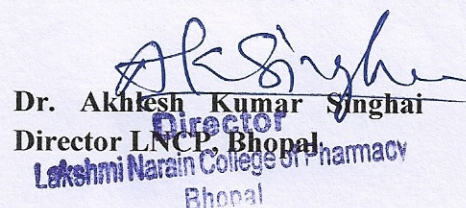 AkSinghai
Dr. Akhlesh Kumar Singhai
Director
Director LNCP, Bhopal.
Lakshmi Narain College of Pharmacy
Bhopal